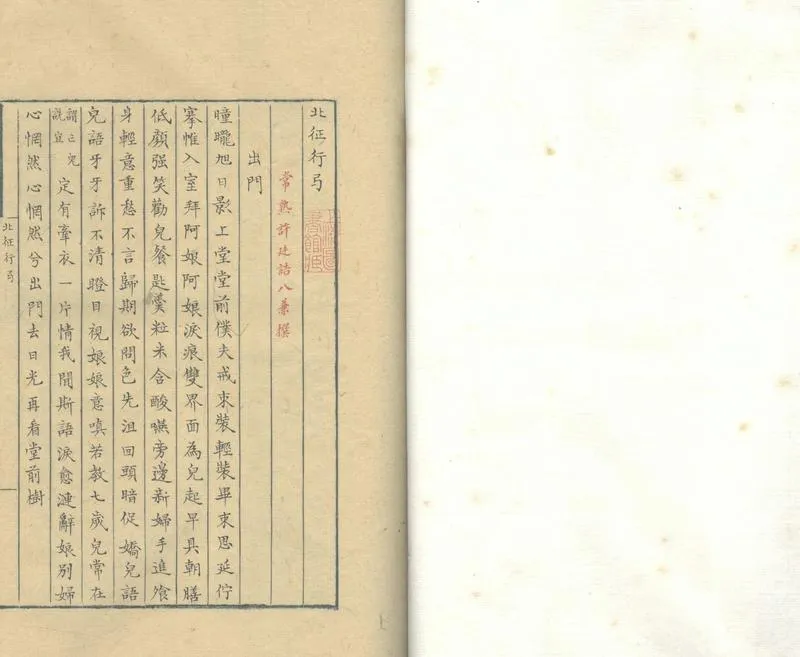 北征行弓
上海圖
書館藏
常熟許廷誥八兼撰
出門
曈曨旭日影上堂堂前僕夫戒束裝輕裝畢束思延佇
搴帷入室拜阿娘阿娘淚痕雙界面為兒起早具朝膳
低顏强笑勸兒餐匙羹粒未含酸嚥旁邊新婦手進飧
身輕意重愁不言歸期欲問色先沮回頭暗促嬌兒語
兒語牙牙訴不清瞪目視娘娘意嗔若教七歲兒常在
謂亡兒説宜定有牽衣一片情我聞斯語淚愈漣辭娘別婦
心惘然心惘然兮出門去日光再看堂前樹
北征行弓